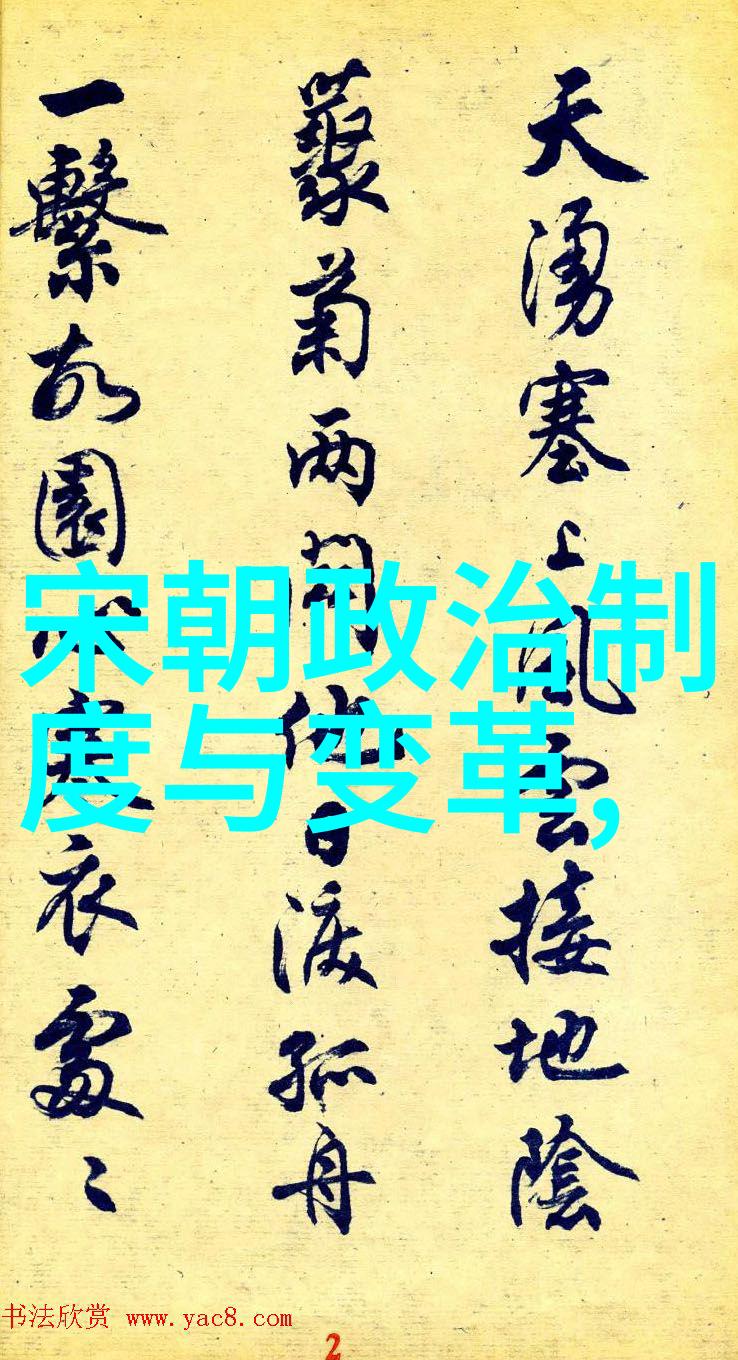 天湧塞上風雲接地陰
叢菊两開他日淚孤舟
一繫故園心寒衣處〻
宋朝政治制
度与变革,
书法欣赏 www.yac8.com
2